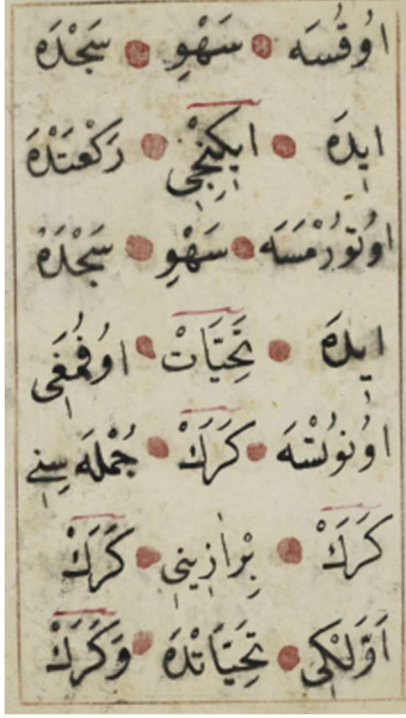 اوُقُسَه سَهْوِ سَجْدَهَ
ايِدَهَ ايكِنْجِي رَكْعَتْدَهَ
اوُتوُرْمَسَه سَهْوِ سَجْدَهَ
ايِدَهَ تَحِيَّاتْ اوُقُمَغِي
اوُنوُتْسَه كَرَكْ جُمْلَه سِنِي
كَرَكْ بِرْازِيني كَرَكْ
اَوَّلْكِي تَحِيَّاتْدَهَ وَكَرَكْ